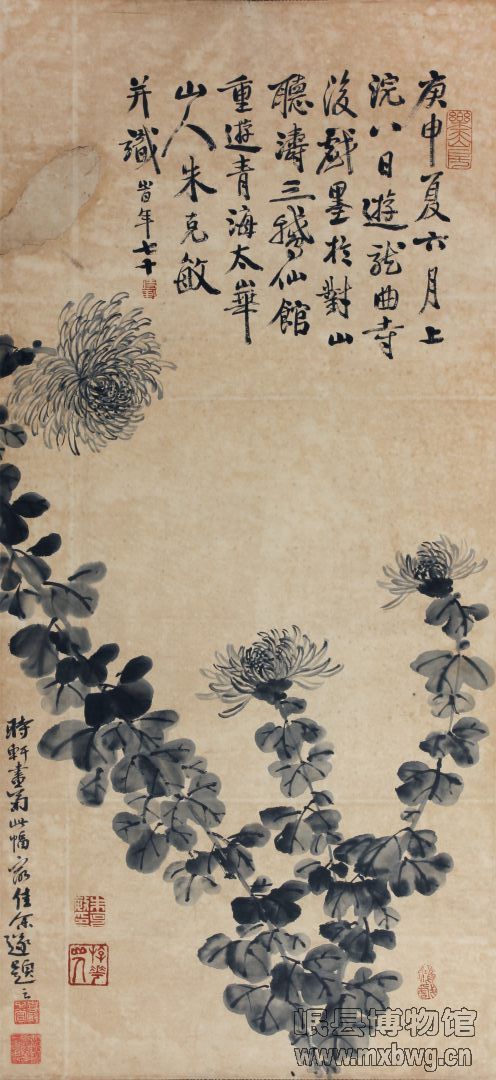 庚申夏六月上
浣八日遊龍曲寺
後戲墨於對山
聽濤三鵝仙館
重遊青海太華
山人朱克敏
并識 時年七十
時軒畫菊此幅最佳余遂題之
岷县博物馆
www.mxbwg.cn